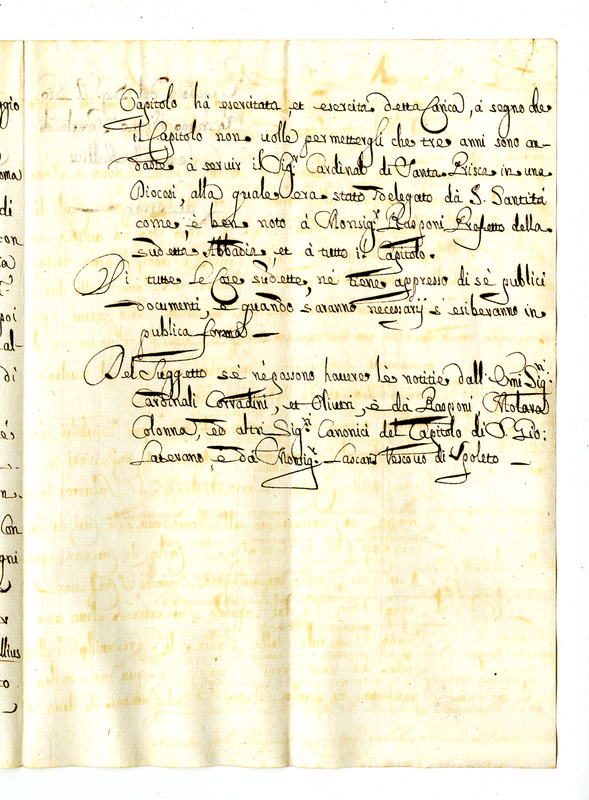 Capitolo hà esercitata, et esercita detta Carica, à segno che
il Capitolo non volle permettergli che tre anni sono an-
dasse à seruir il Sig.r Cardinal di Santa Prisca in una
Diocesi, alla quale era stato delegato dà S. Santità
come è ben noto à Monsig.r Rasponi Prefetto della
sudetta Abbadia, et à tutto il Capitolo.
Di tutte le Cose sudette, né tiene appresso di sé publici
documenti, e quando saranno necesarij s'esiberanno in
publica forma —
Del Suggetto se né possono hauere lé notitie dall' Emi Sig.ri
Cardinali Corradini, et Oliueri, e dà Rasponi
Colonna, ed altri Sig.ri Canonici del Capitolo di S. Gio:
Laterano, e da Monsig.r Lascaris Vescouo di Spoleto —
ggio
oma
di
con
ia
poi
al-
di
n.
Con
gni
llius
to